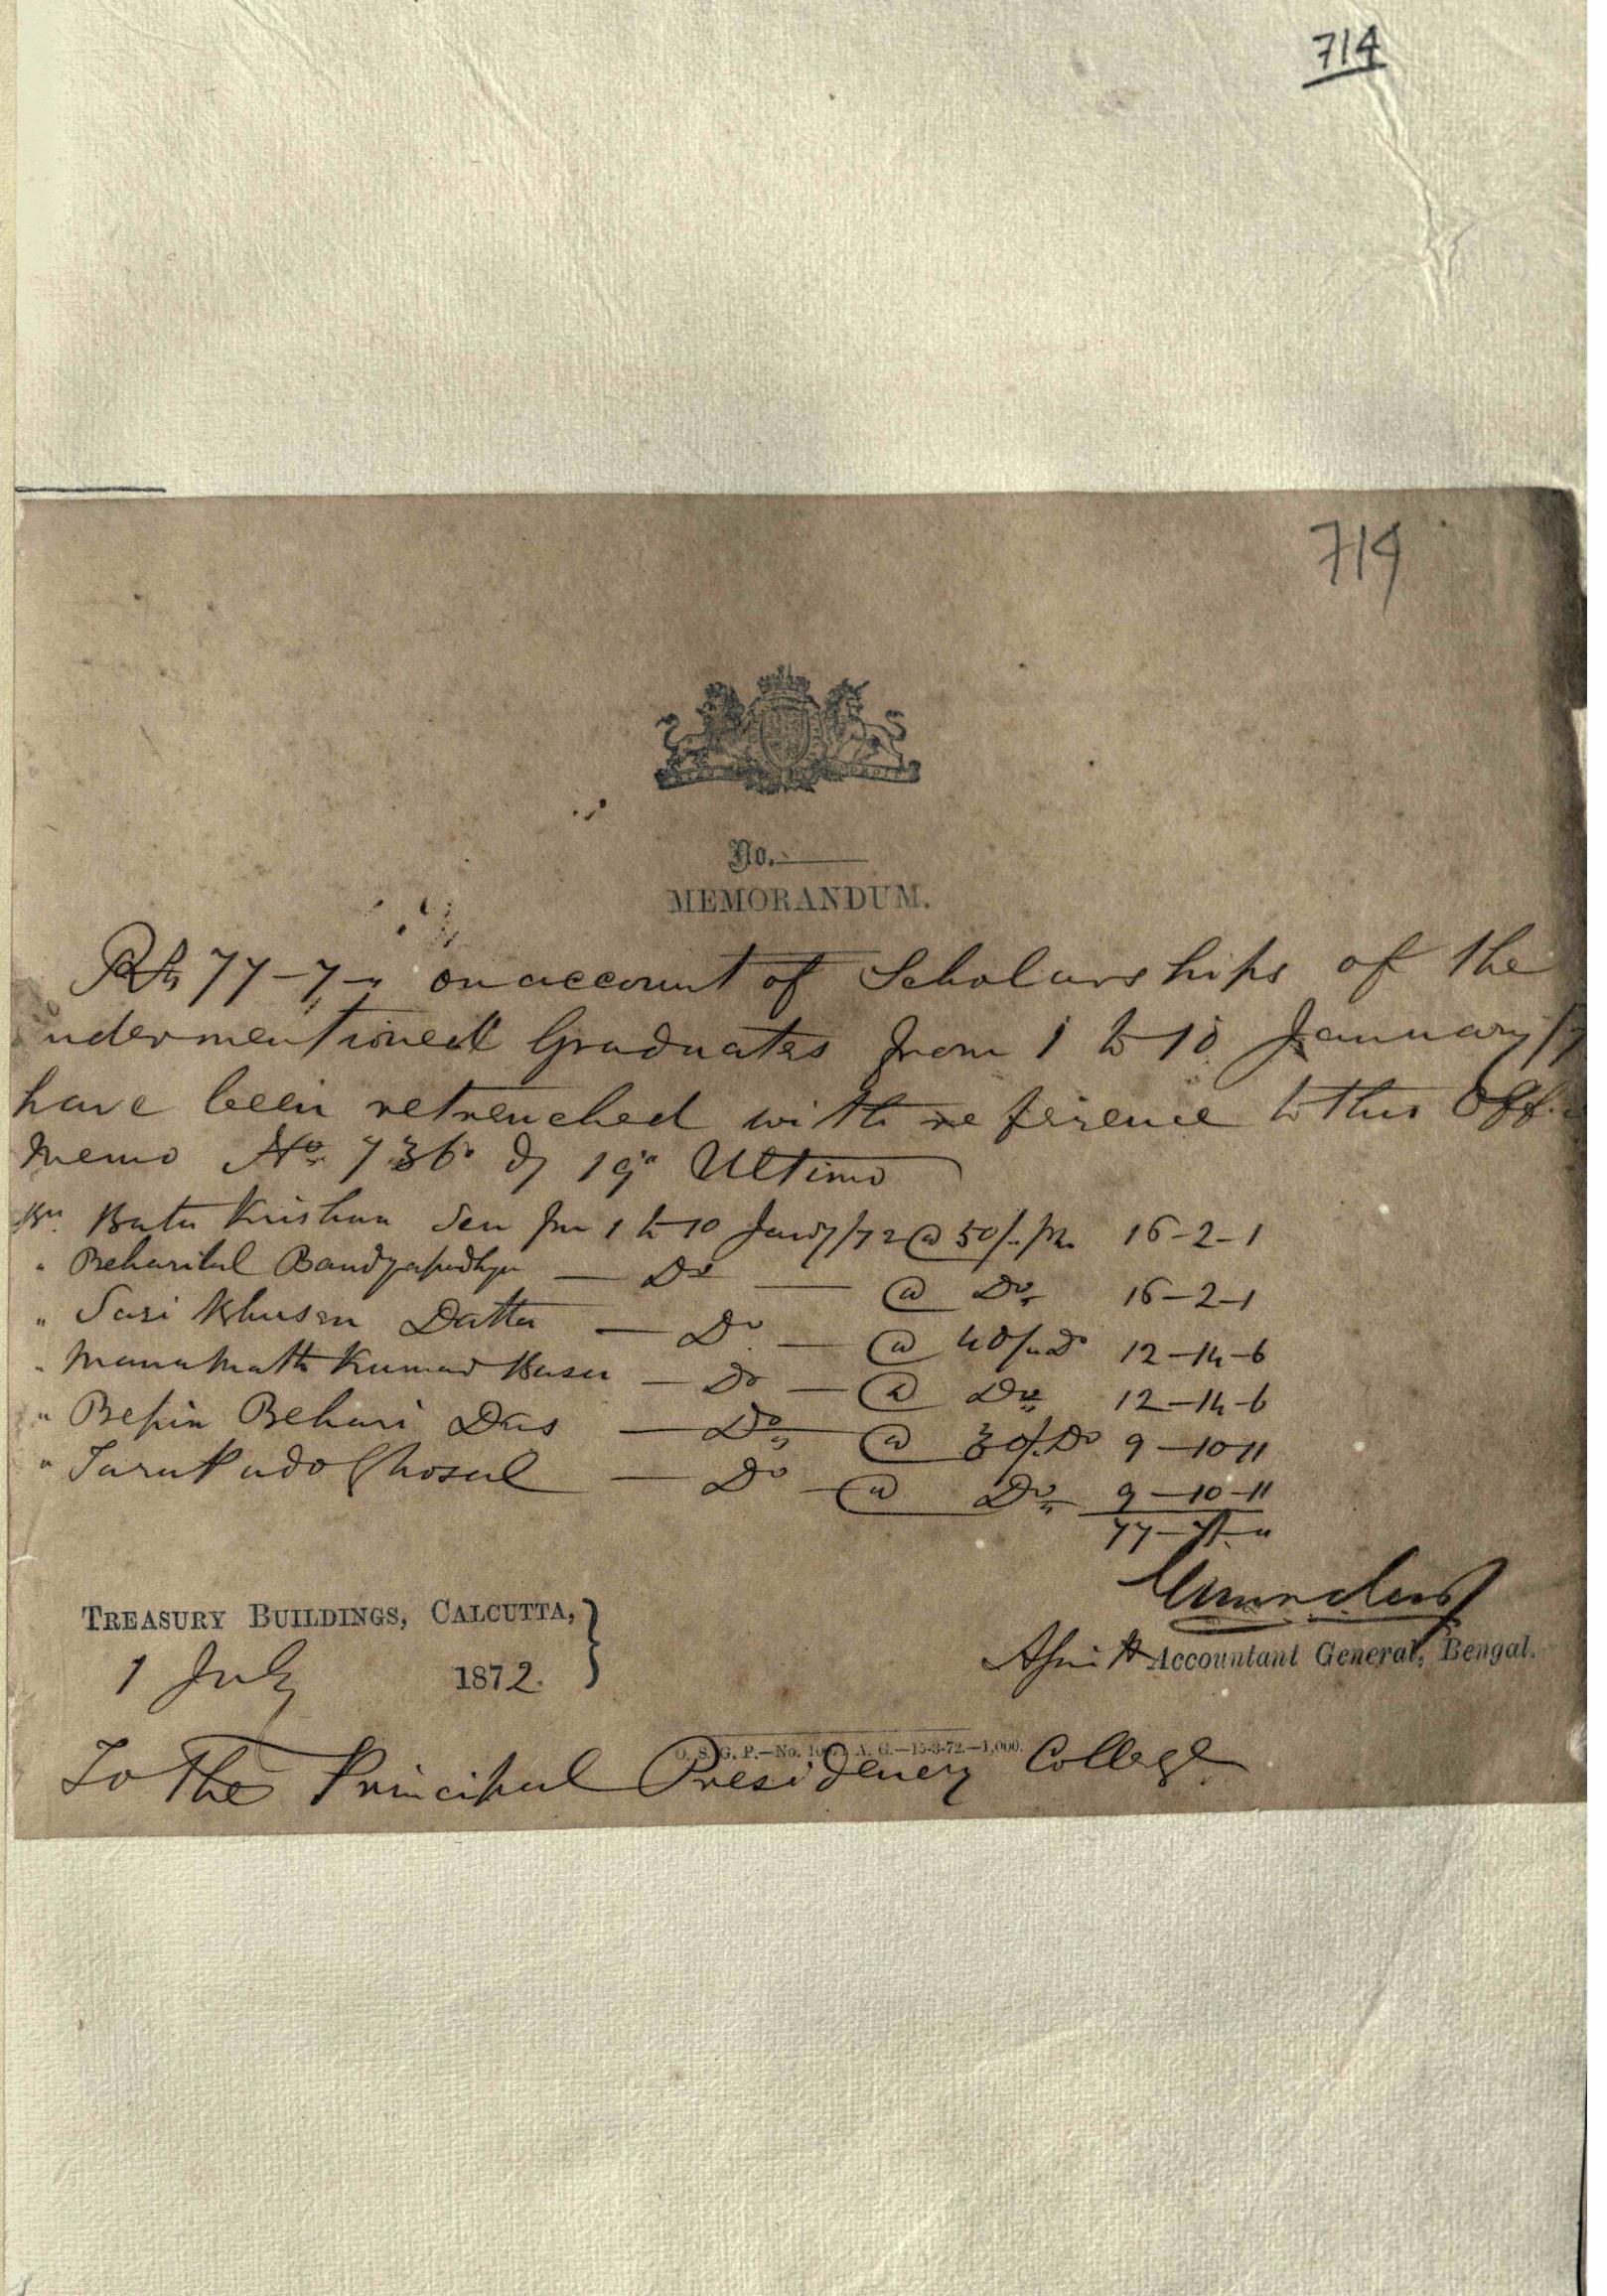 714
714
No.
MEMORANDUM.
Rs 77-7-" on account of Scholarships of the
undermentioned Graduates from 1 to 10 January/7
have been retrenched with reference to this Offi
memo No. 736 of 19th Ultimo
Bu. Batu Krishna Sen fm 1 to 10 Jany/72 @ 50/- pm. 16-2-1
" Beharilal Bandyapadhya — Do — @ Do 16-2-1
" Sasi Bhusan Datta — Do — @ 40/- Do 12-14-6
" Manamatha Kumar Basu — Do — @ Do 12-14-6
" Bepin Behari Das — Do — @ 30/- Do 9-10-11
" Tarapado Ghosal — Do — @ Do 9-10-11
77-7-"
TREASURY BUILDINGS, CALCUTTA,
1 July 1872.
Accountant General, Bengal.
O. S. G. P.—No. A. G.—15-3-72.—1,000.
To The Principal Presidency College